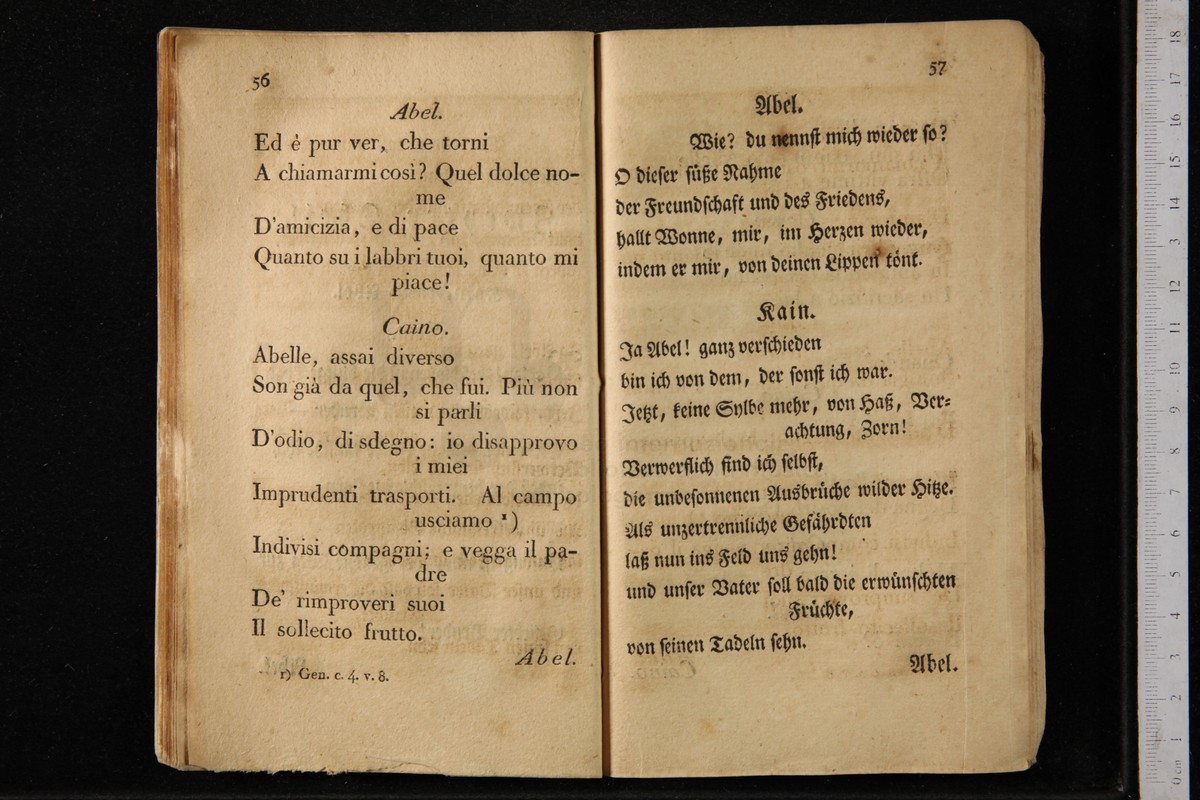 56
Abel.
Ed é pur ver, che torni
A chiamarmi così? Quel dolce no-
me
D'amicizia, e di pace
Quanto su i labbri tuoi, quanto mi
piace!
Caino.
Abelle, assai diverso
Son già da quel, che fui. Più non
si parli
D'odio, di sdegno: io disapprovo
i miei
Imprudenti trasporti. Al campo
usciamo ¹)
Indivisi compagni; e vegga il pa-
dre
De' rimproveri suoi
Il sollecito frutto.
Abel.
1) Gen. c. 4. v. 8.
57
Abel.
Wie? du nennſt mich wieder ſo?
O dieſer ſüße Nahme
der Freundſchaft und des Friedens,
hallt Wonne, mir, im Herzen wieder,
indem er mir, von deinen Lippen tönt.
Kain.
Ja Abel! ganz verſchieden
bin ich von dem, der ſonſt ich war.
Jetzt, keine Sylbe mehr, von Haß, Ver=
achtung, Zorn!
Verwerflich find ich ſelbſt,
die unbeſonnenen Ausbrüche wilder Hitze.
Als unzertrennliche Gefährdten
laß nun ins Feld uns gehn!
und unſer Vater ſoll bald die erwünſchten
Früchte,
von ſeinen Tadeln ſehn.
Abel.
0 cm 1 2 3 4 5 6 7 8 9 10 11 12 13 14 15 16 17 18